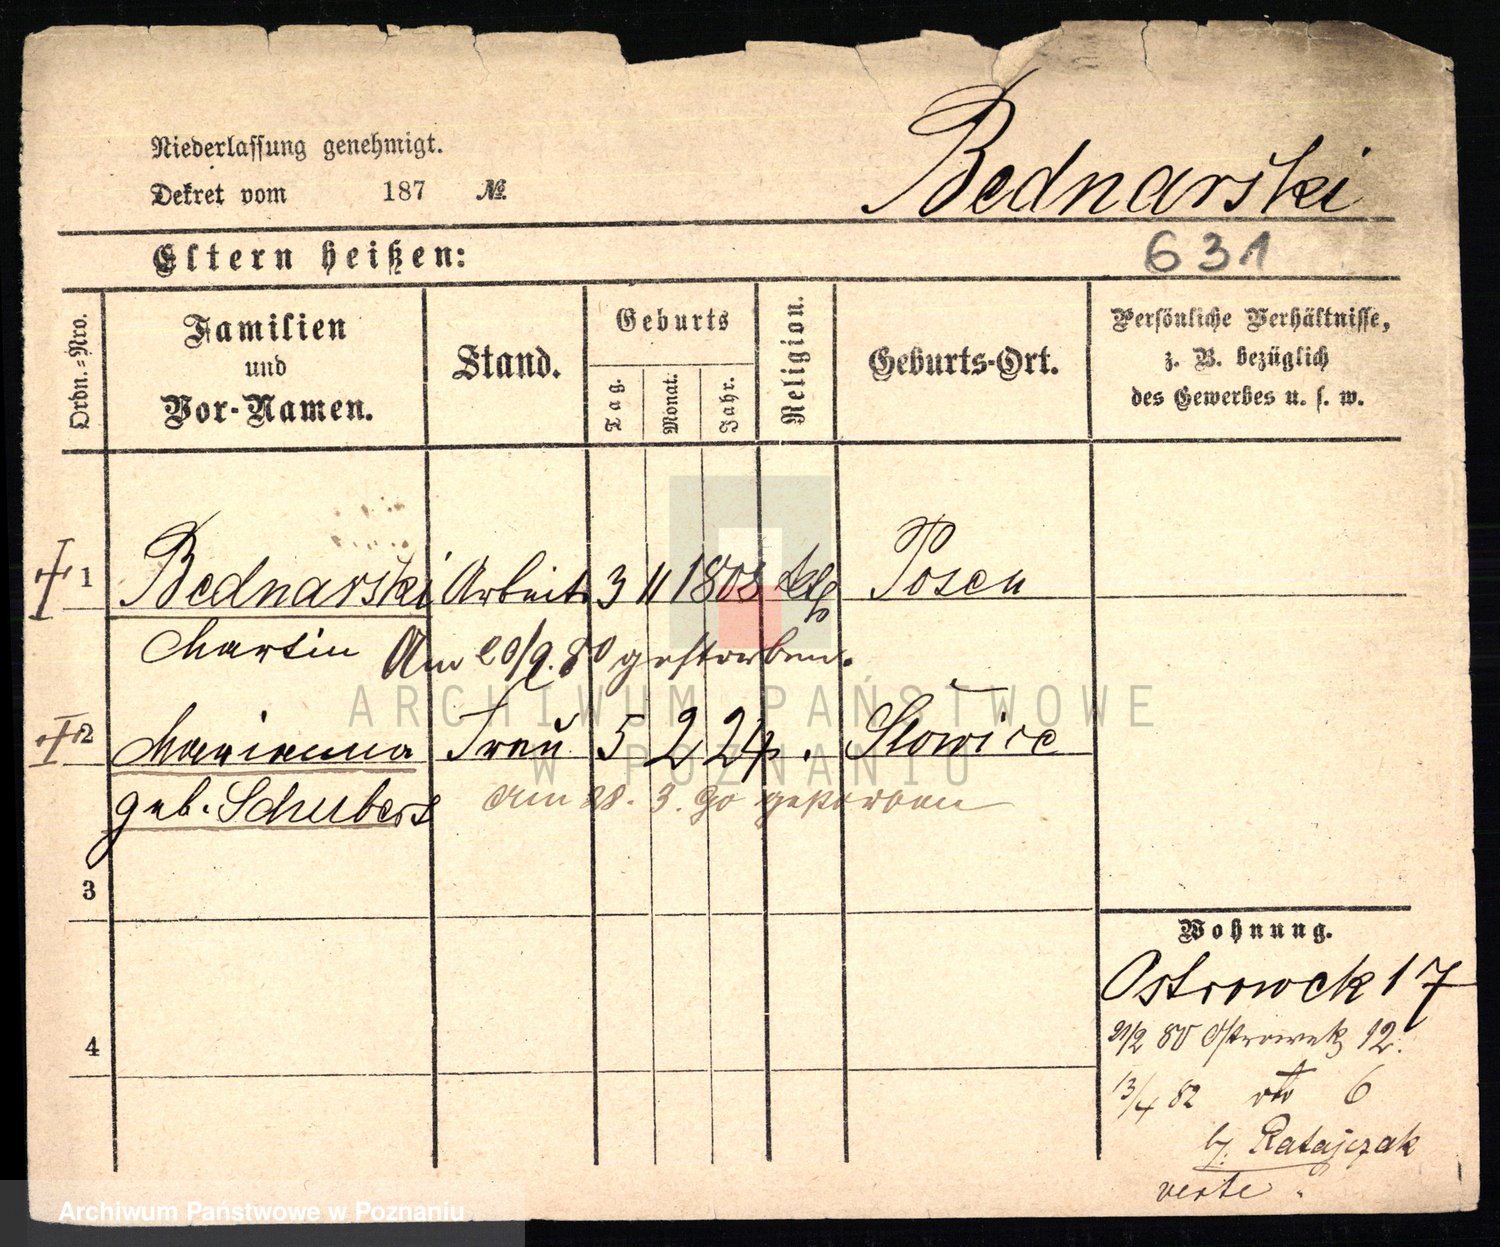 Niederlassung genehmigt.
Dekret vom 187 №
Bednarski
Eltern heißen:
631
Ordn.-Nro.
Familien und Vor-Namen.
Stand.
Geburts
Tag.
Monat.
Jahr.
Religion.
Geburts-Ort.
Persönliche Verhältnisse,
z. B. bezüglich
des Gewerbes u. s. w.
1 Bednarski Arbeitr 3 11 1808 kth Posen
Martin Am 20/9. 80 gestorben.
2 Marianna Frau 5 2 24
geb. Schubert am 28. 3. 90 gestorben
3
4
Wohnung.
Ostrowek 17
21/2 80 Ostrowek 12.
13/4 82 dto 6
b. Ratajczak
verte
ARCHIWUM PAŃSTWOWE
W POZNANIU
Archiwum Państwowe w Poznaniu